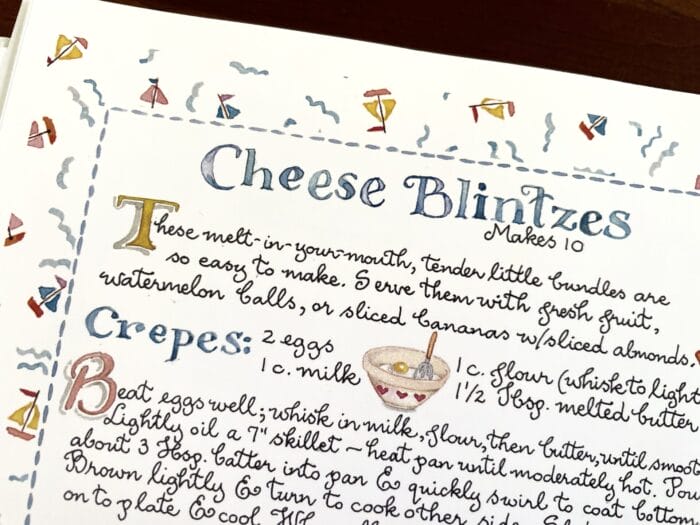 Cheese Blintzes
Makes 10
These melt-in-your-mouth, tender little bundles are
so easy to make. Serve them with fresh fruit,
watermelon balls, or sliced bananas w/sliced almonds.
Crepes: 2 eggs 1 c. flour (whisk to light
1 c. milk 1 1/2 Tbsp. melted butter
Beat eggs well; whisk in milk, flour, then butter, until smoot
Lightly oil a 7" skillet ~ heat pan until moderately hot. Pou
about 3 Tbsp. batter into pan & quickly swirl to coat bottom
Brown lightly & turn to cook other side.
on to plate & cool.